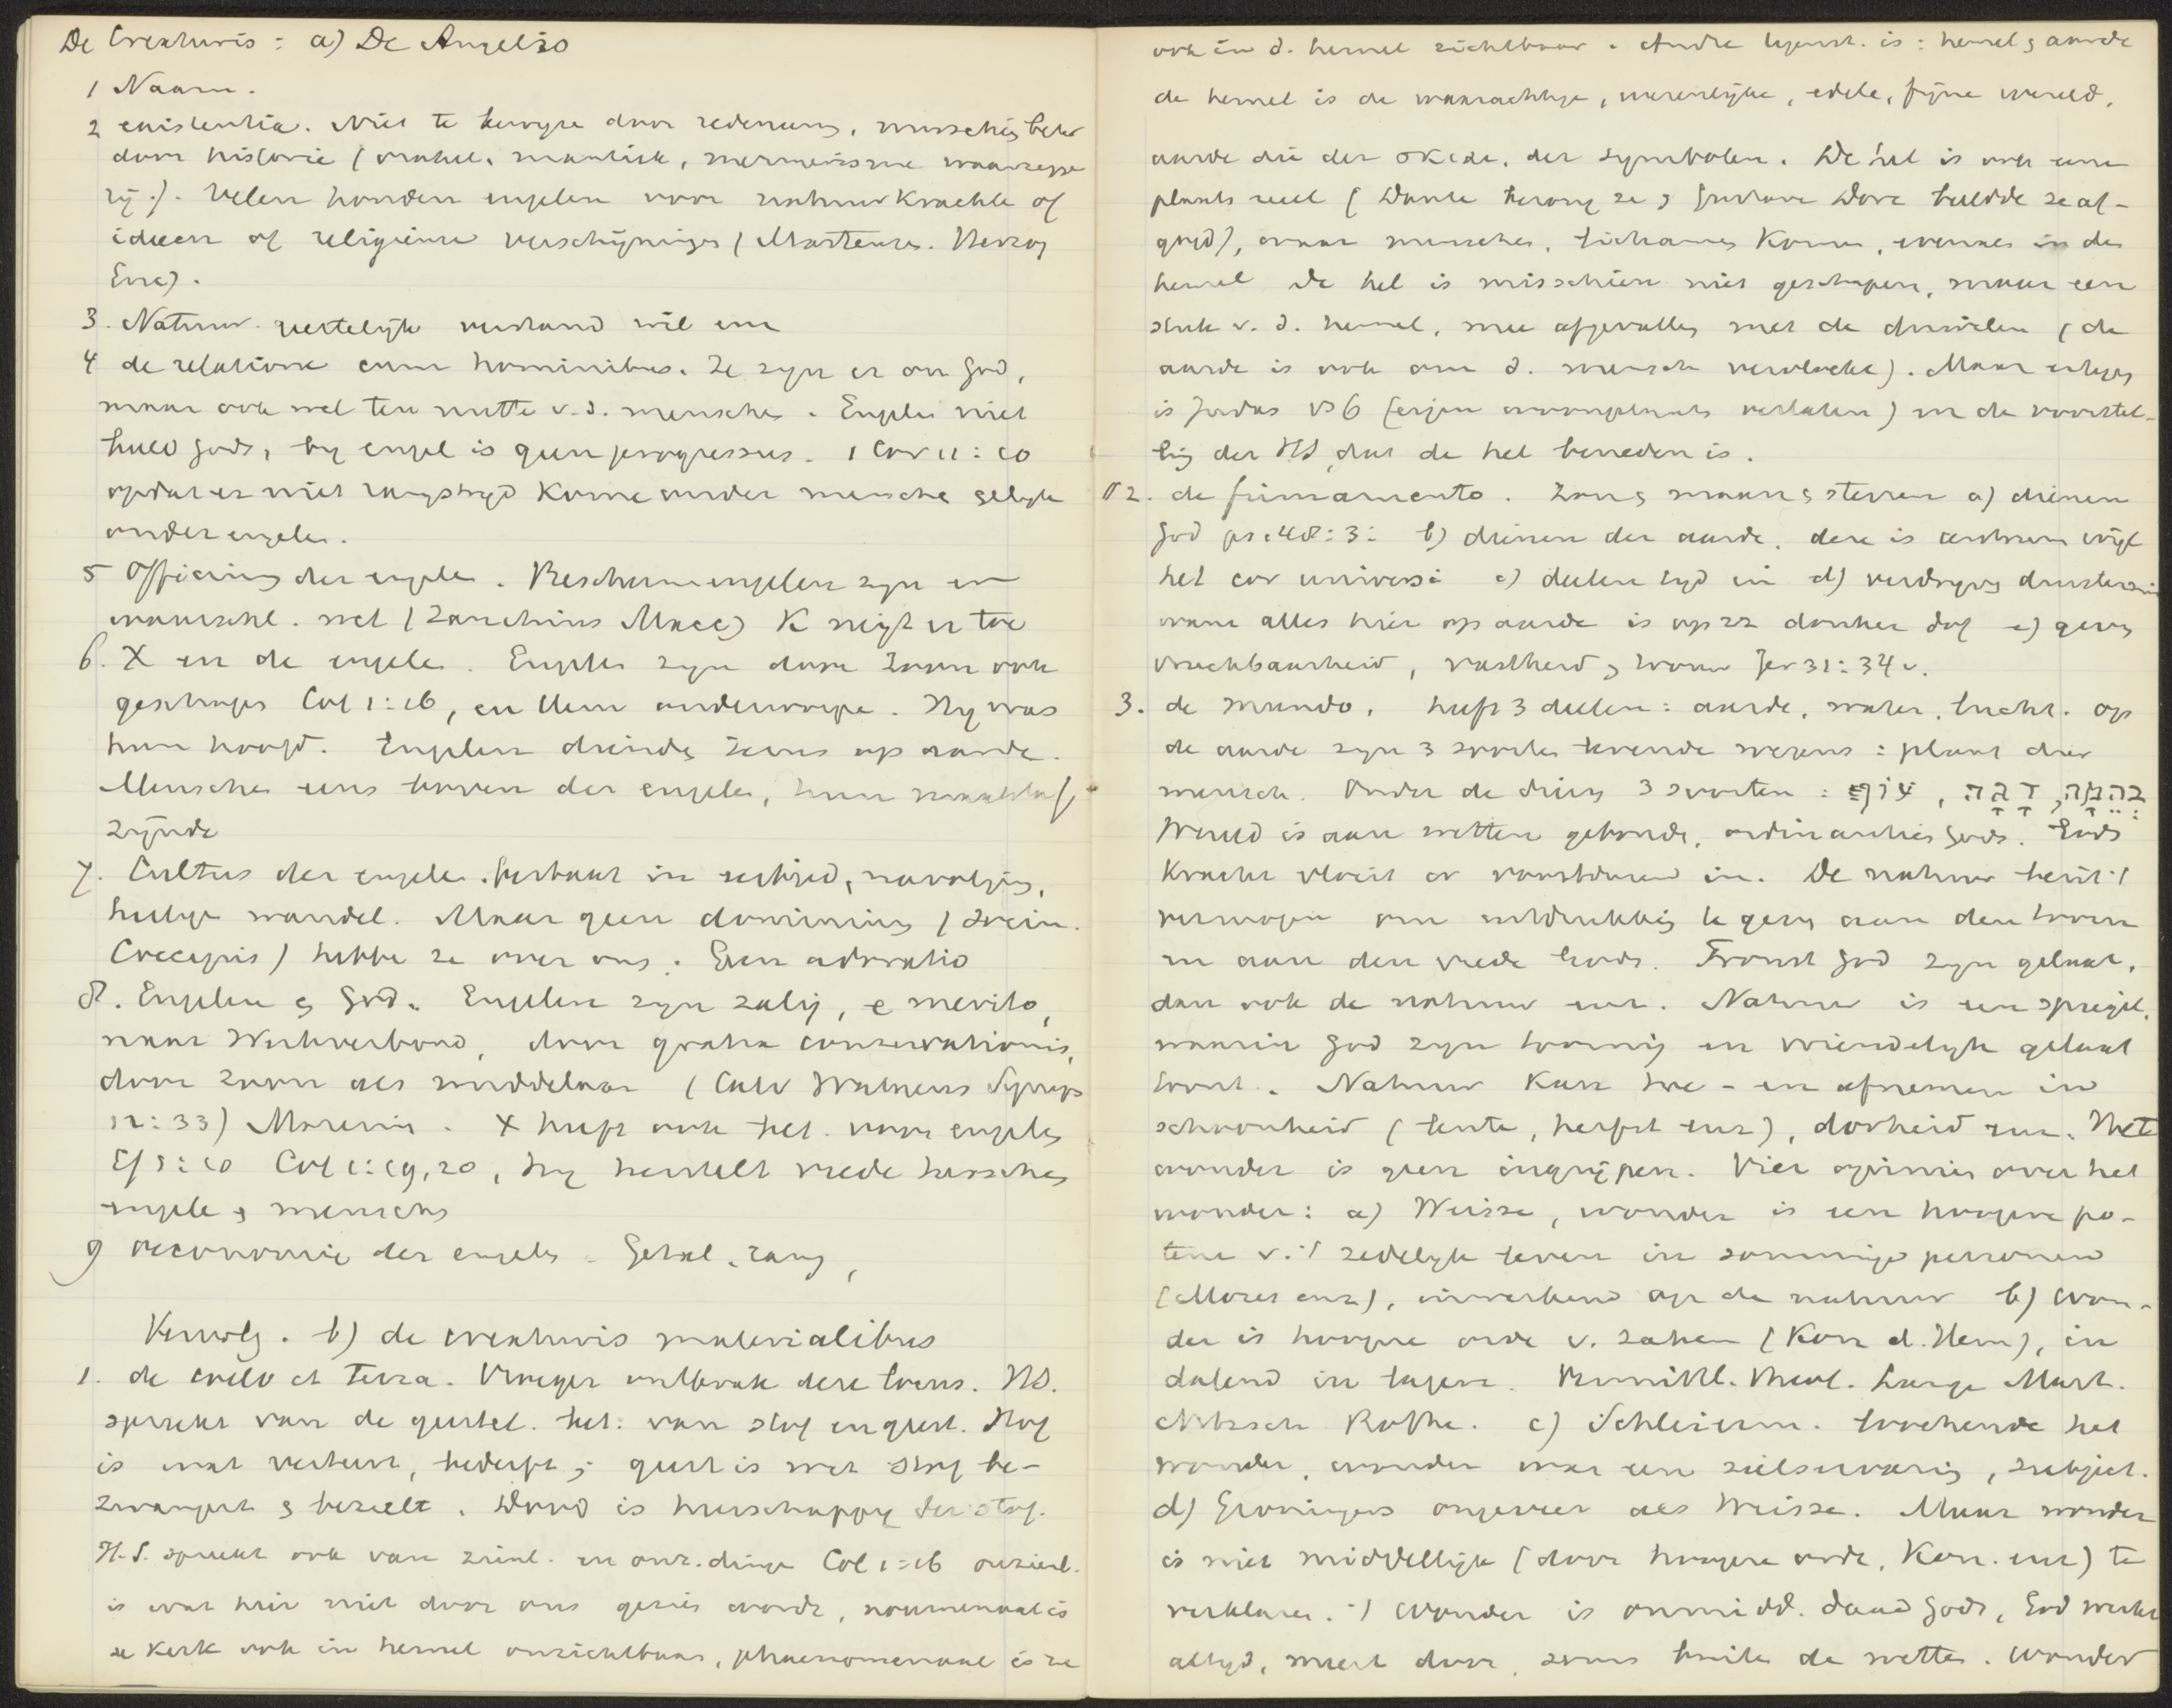 De Creaturis: a) De Angelis
1 Naam.
2 existentia. Niet te bewijze door redeneering, misschien beter
door historie (orakel, mantiek, mesmerisme waarzegge
rij.). Velen houden engelen voor natuurkrachte of
ideeen of religieuse verschijninge (Martensen. Herzog
Enc).
3. Natuur. geestelijk verstand wil enz
4 de relatione cum hominibus. Ze zyn er om God,
maar ook wel ten nutte v. d. menschen. Engelen niet
beeld Gods, by engel is geen progressus. 1 Cor 11:10
opdat er niet rangstryd kome onder mensche gelyk
onder engelen.
5 Officium der engelen. Beschermengelen zyn er
waarschl. wel (Zanchius Macc) K neigt er toe
6. X en de engelen. Engelen zyn door Zoon ook
geschapen Col 1:16, en Hem onderworpe. Hy was
hun hoofd. Engelen diende Jezus op aarde.
Menschen eens boven der engelen, hun
zynde
7. Cultus der engelen. bestaat in eerbied, navolging,
heilige wandel. Maar geen dominium (Socin.
Crocejus) hebbe ze over ons. Geen adoratio
8. Engelen en God. Engelen zyn zalig, e merito,
naar Werkverbond, door gratia conservationis,
door Zoon als middelaar (Calv Walaeus Synops
12:33) Maresius. X heeft ook bet. voor engelen
Ef 1:10 Col 1:19,20, hy herstelt vrede tusschen
engele en menschen
9 oeconomie der engelen. Getal, rang,
Vervolg. b) de creaturis materialibus
1. de coelo et terra. Vroeger ontbrak deze locus. HS.
spreekt van de geestel. bet. van stof en geest. Stof
is wat verteert, bederft; geest is wat stof be-
zwangert en bezielt. Dood is heerschappy der stof.
H.S. spreekt ook van zienl. en onz. dinge Col 1:16 onzienl.
is wat hier niet door ons gezien wordt, noumenaal is
de kerk ook in hemel onzichtbaar, phaenomenaal is ze
ook in d. hemel zichtbaar. Andre tegenst. is: hemel en aarde
de hemel is de waarachtige, wezenlijke, edele, fijne wereld,
aarde die der σκιαι, der symbolen. De hel is ook eene
plaats reeel (Dante bezong ze en Gustave Dore beeldde ze af-
goed), waar menschen, lichamen komen, evenals in den
hemel de hel is misschien niet geschapen, maar een
stuk v. d. hemel, mee afgevallen met de duivelen (de
aarde is ook om d. mensch vervloekt). Maar ertegen
is Judas vs 6 (eigen woonplaats verlaten) en de voorstel-
ling der HS, dat de hel beneden is.
2. de firmamento. Zon en maan en sterren a) dienen
God ps 148:3: b) dienen der aarde, deze is centrum wijl
het cor universi c) deelen tyd in d) verdryven duisternis
want alles hier op aarde is op zz donker dof e) geven
vruchtbaarheid, vastheid en trouw Jer 31:34v.
3. de mundo, heeft 3 deelen: aarde, water, lucht. Op
de aarde zyn 3 soorten levende wezens: plant dier
mensch. Onder de dieren 3 soorten: עוף, דגה, בהמה
Wereld is aan wetten gebonde, ordinantiën Gods. Gods
kracht vloeit er voortdurend in. De natuur bezit 't
vermogen om uitdrukking te geven aan den toorn
en aan den vrede Gods. Fronst God zyn gelaat,
dan ook de natuur enz. Natuur is een spiegel,
waarin God zyn toornig en vriendelyk gelaat
toont. Natuur kan toe- en afnemen in
schoonheid (lente, herfst enz), dorheid enz. Het
wonder is geen ingrijpen. Vier opinies over het
wonder: a) Weisse, wonder is een hoogere po-
tenz v. 't zedelyk leven in sommige personen
(Mozes enz), inwerkend op de natuur b) Won-
der is hoogere orde v. zaken (Kon d. Hem), in
dalend in lagere. Vermittl. Theol. Lange Mart.
Nitzsch Rothe. c) Schleierm. loochende het
wonder, wonder was een zielservaring, subject.
d) Groningers ongeveer als Weisse. Maar wonder
is niet middellijk (door hoogere orde, Kon. enz) te
verklaren. 't Wonder is onmidd. daad Gods, God werkt
altyd, meest door, soms buiten de wetten. Wonder